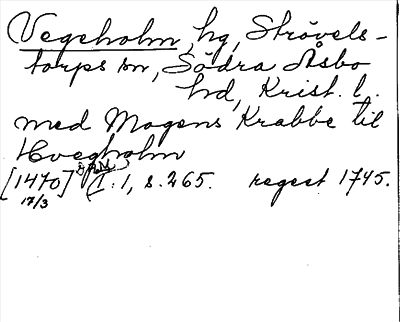 Vegeholm, hg, Strövels-
torps sn, Södra Åsbo
hd, Krist. l.
med Mogens Krabbe til
Hvegholm
[1470] ÆDA I:1, s. 265. regest 1745.
17/3